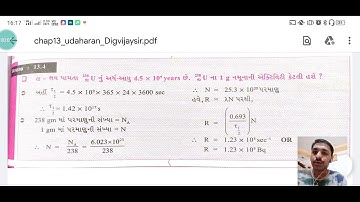 16:17
chap13_udaharan_Digvijaysir.pdf
13.4
α - ક્ષય પામતા ²³⁸₉₂U નું અર્ધ-આયુ 4.5 × 10⁹ years છે. ²³⁸₉₂U ના 1 g નમૂનાની એક્ટિવિટી કેટલી હશે ?
અહીં τ½ = 4.5 × 10⁹ × 365 × 24 × 3600 sec
∴ τ½ = 1.42 × 10¹⁷ s
238 gm માં પરમાણુની સંખ્યા = N_A
1 gm માં પરમાણુની સંખ્યા = N
∴ N = N_A/238 = 6.023×10²³/238
∴ N = 25.3 × 10²⁰ પરમાણુ
હવે, R = λN પરથી,
R = (0.693/τ½) N
∴ R = 1.23 × 10⁴ sec⁻¹ OR
R = 1.23 × 10⁴ Bq